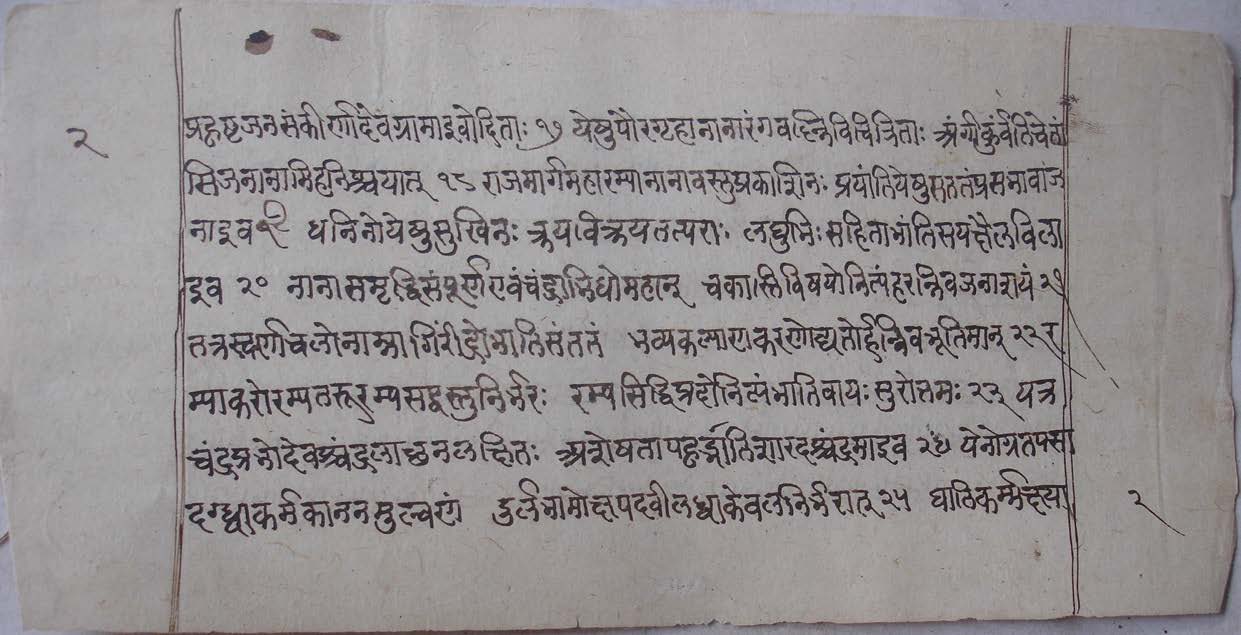 २
प्रहृष्टजनसंकीर्णादेवग्रामाइवोदिताः १७ येषुपौरगृहानानारंगवह्निविचित्रिताः अंगीकुर्वंतिचेतां
सिजनानामिहनिश्चयात् १८ राजमार्गमहारम्यानानावस्तुप्रकाशिनः प्रयांतियेषुसततंप्रसभावाज
नाइव १९ धनिनोयेषुसुखिनः क्रयविक्रयतत्पराः लघुभिःसहिताभांतिसयक्षैलविला
इव २० नानासमृद्धिसंपूर्णएवंचंद्राभिधोमहान् चकास्तिविषयोनित्यंहरन्निवजनाशयं २१
तत्रस्वर्णाचलोनाम्नागिरींद्रोभातिसंततं भव्यकल्याणकरणोद्यतोर्हन्निवभूतिमान् २२ र
म्याकरोरम्यतरुरम्यसद्वस्तुनिर्भरः रम्यसिद्धिप्रदोनित्यंभातिवायःसुरोत्तमः २३ यत्र
चंद्रप्रभोदेवश्चंद्रलाञ्छनलक्षितः अशेषतापहृद्भातिशारदश्चंद्रमाइव २४ येनोग्रतपसा
दग्ध्वाकर्मकाननमुल्वणं दुर्लभामोक्षपदवीलब्धाकेवलनिर्भरात् २५ घातिकर्म्मक्षया
२